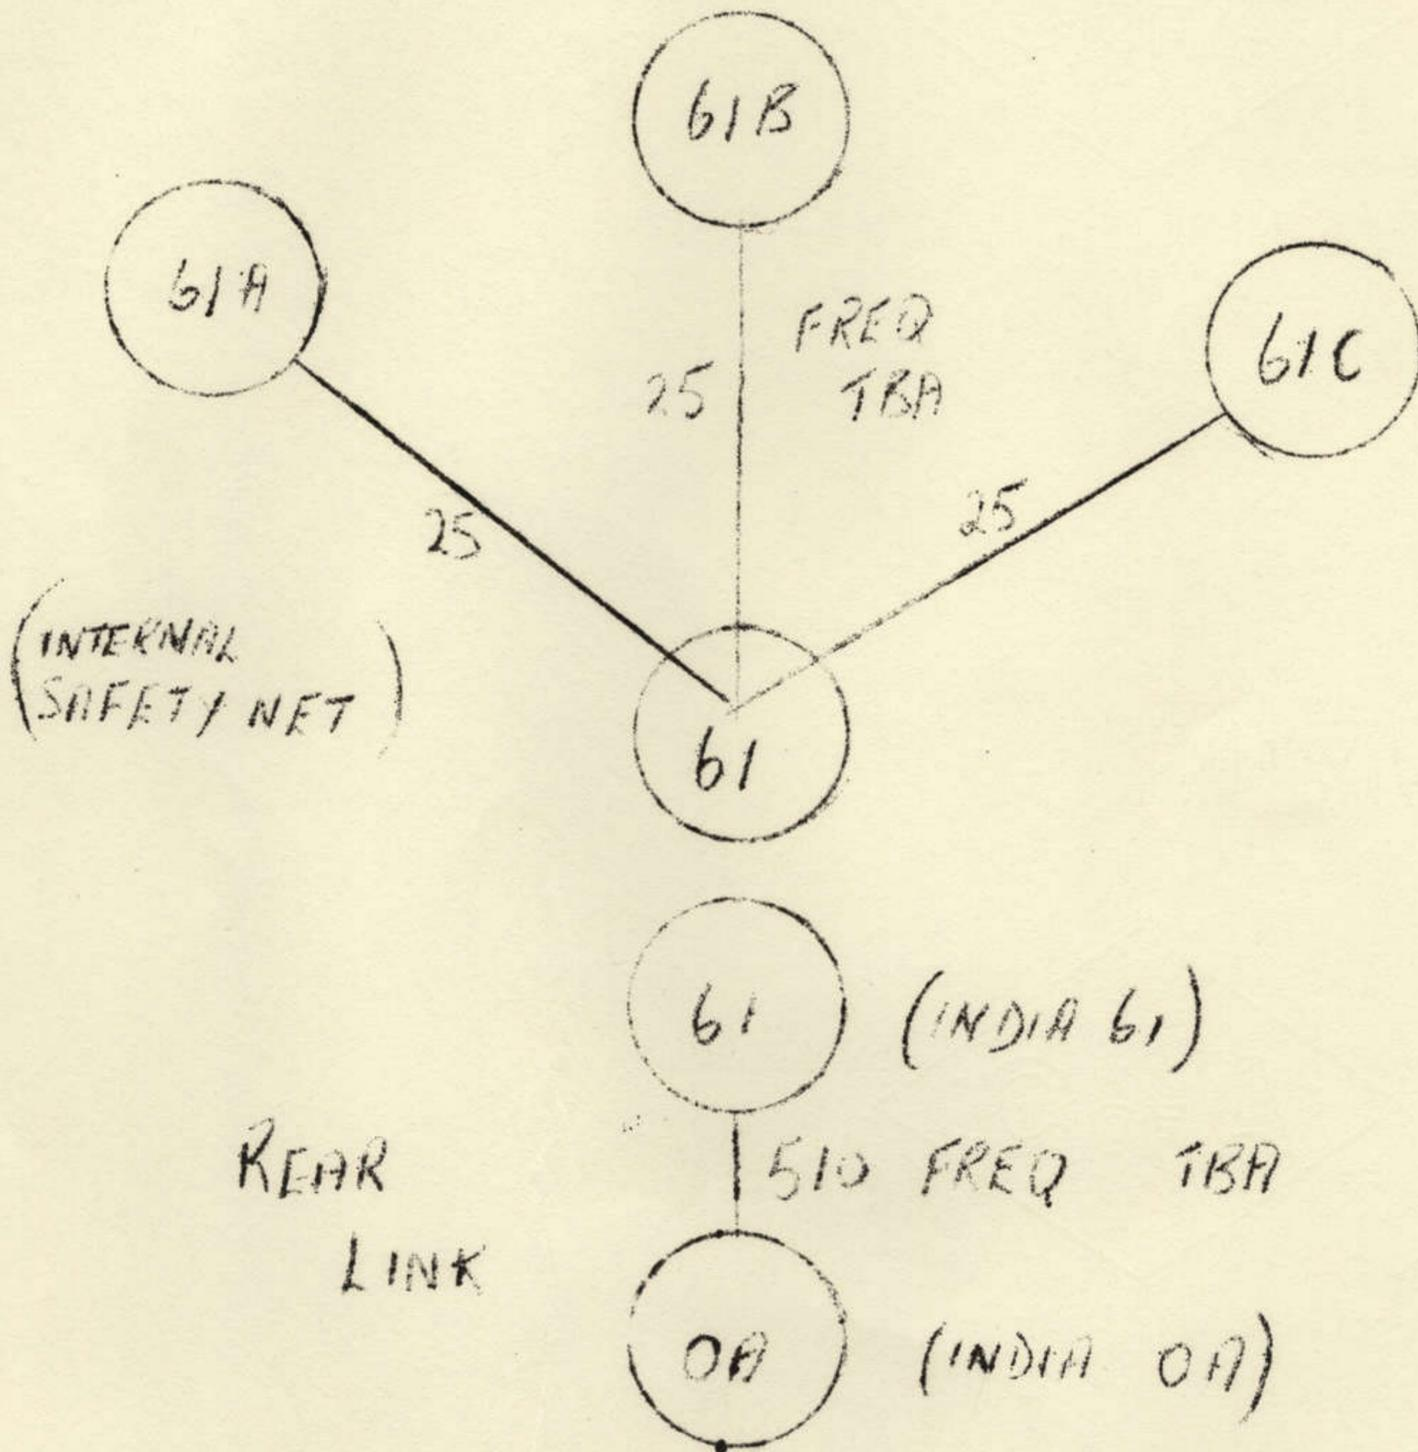 61B
61A
61C
FREQ
TBA
25
25
25
(INTERNAL
SAFETY NET)
61
61 (INDIA 61)
REAR
LINK
510 FREQ TBA
0A (INDIA 0A)